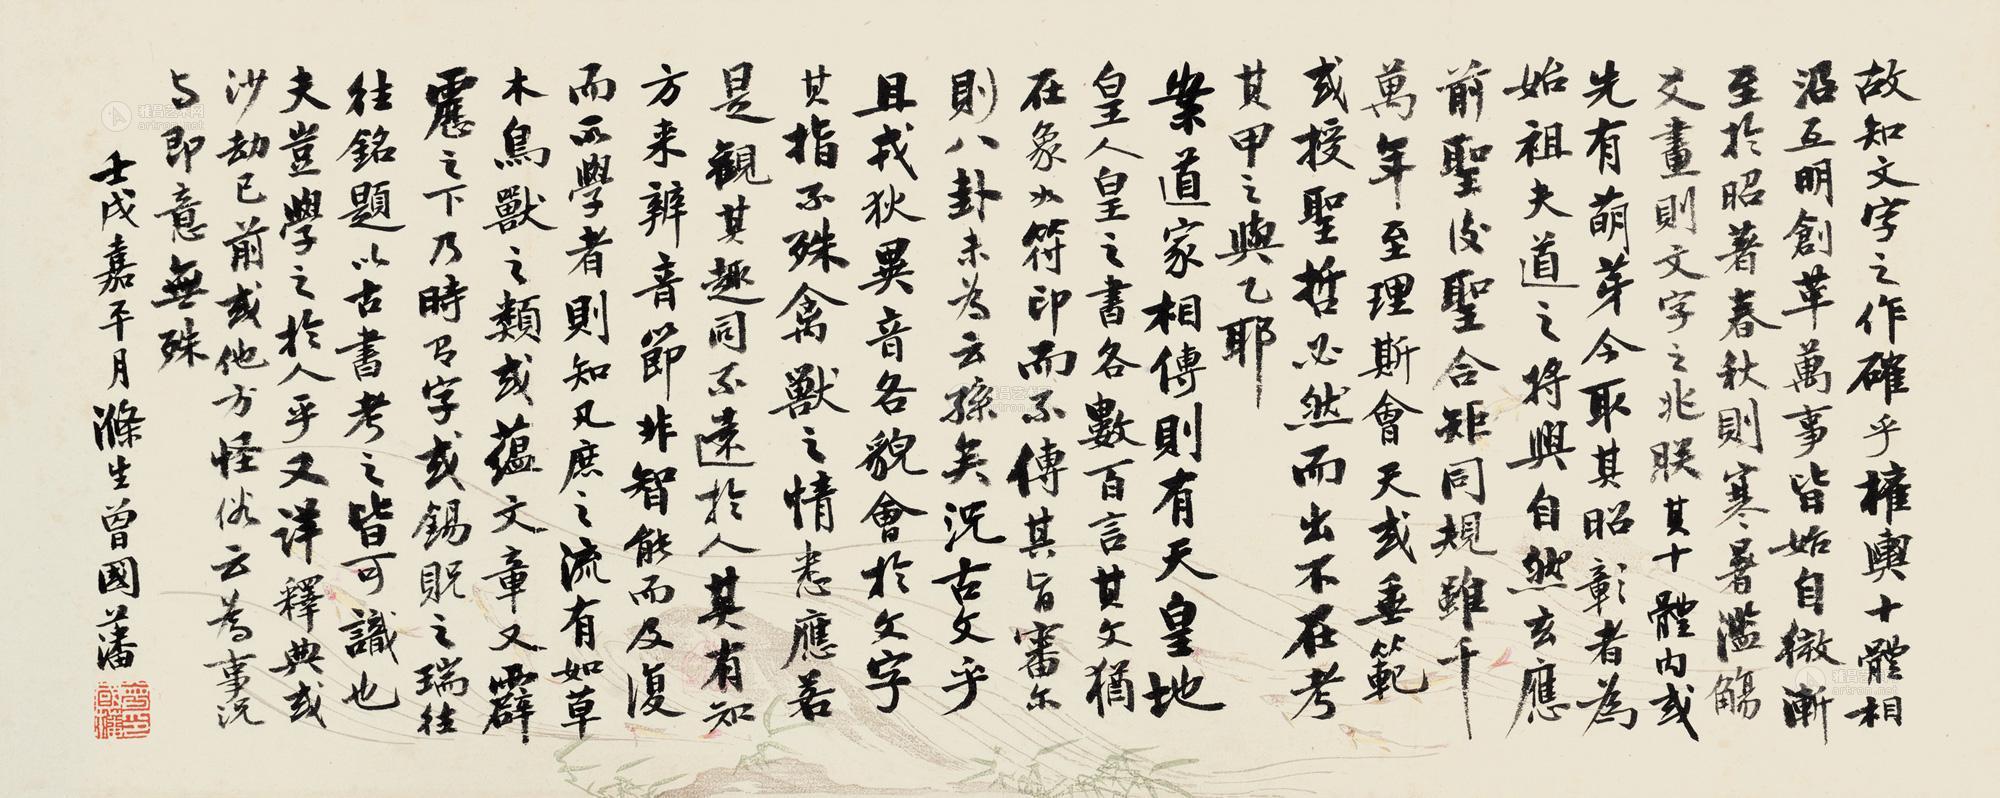 故知文字之作確乎權輿十體相
沿互明創革萬事皆始自微漸
至於昭著春秋則寒暑濫觴
爻畫則文字之兆朕其十體內或
先有萌芽今取其昭彰者為
始祖夫道之將興自然玄應
前聖後聖合矩同規雖千
萬年至理斯會天或垂範
或授聖哲必然而出不在考
其甲之與乙耶
案道家相傳則有天皇地
皇人皇之書各數百言其文猶
在象如符印而不傳其旨審爾
則八卦未為云孫矣況古文乎
且戎狄異音各貌會於文字
其指不殊禽獸之情悉應若
是觀其趣同不遠於人其有知
方来辨音節非智能而及復
而所學者則知凡庶之流有如草
木鳥獸之類或蘊文章又霹
靂之下乃時有字或錫貺之瑞往
往銘題以古書考之皆可識也
夫豈學之於人乎又詳釋典或
沙劫已前或他方怪俗云為事況
与即意無殊
壬戌嘉平月滌生曾國藩